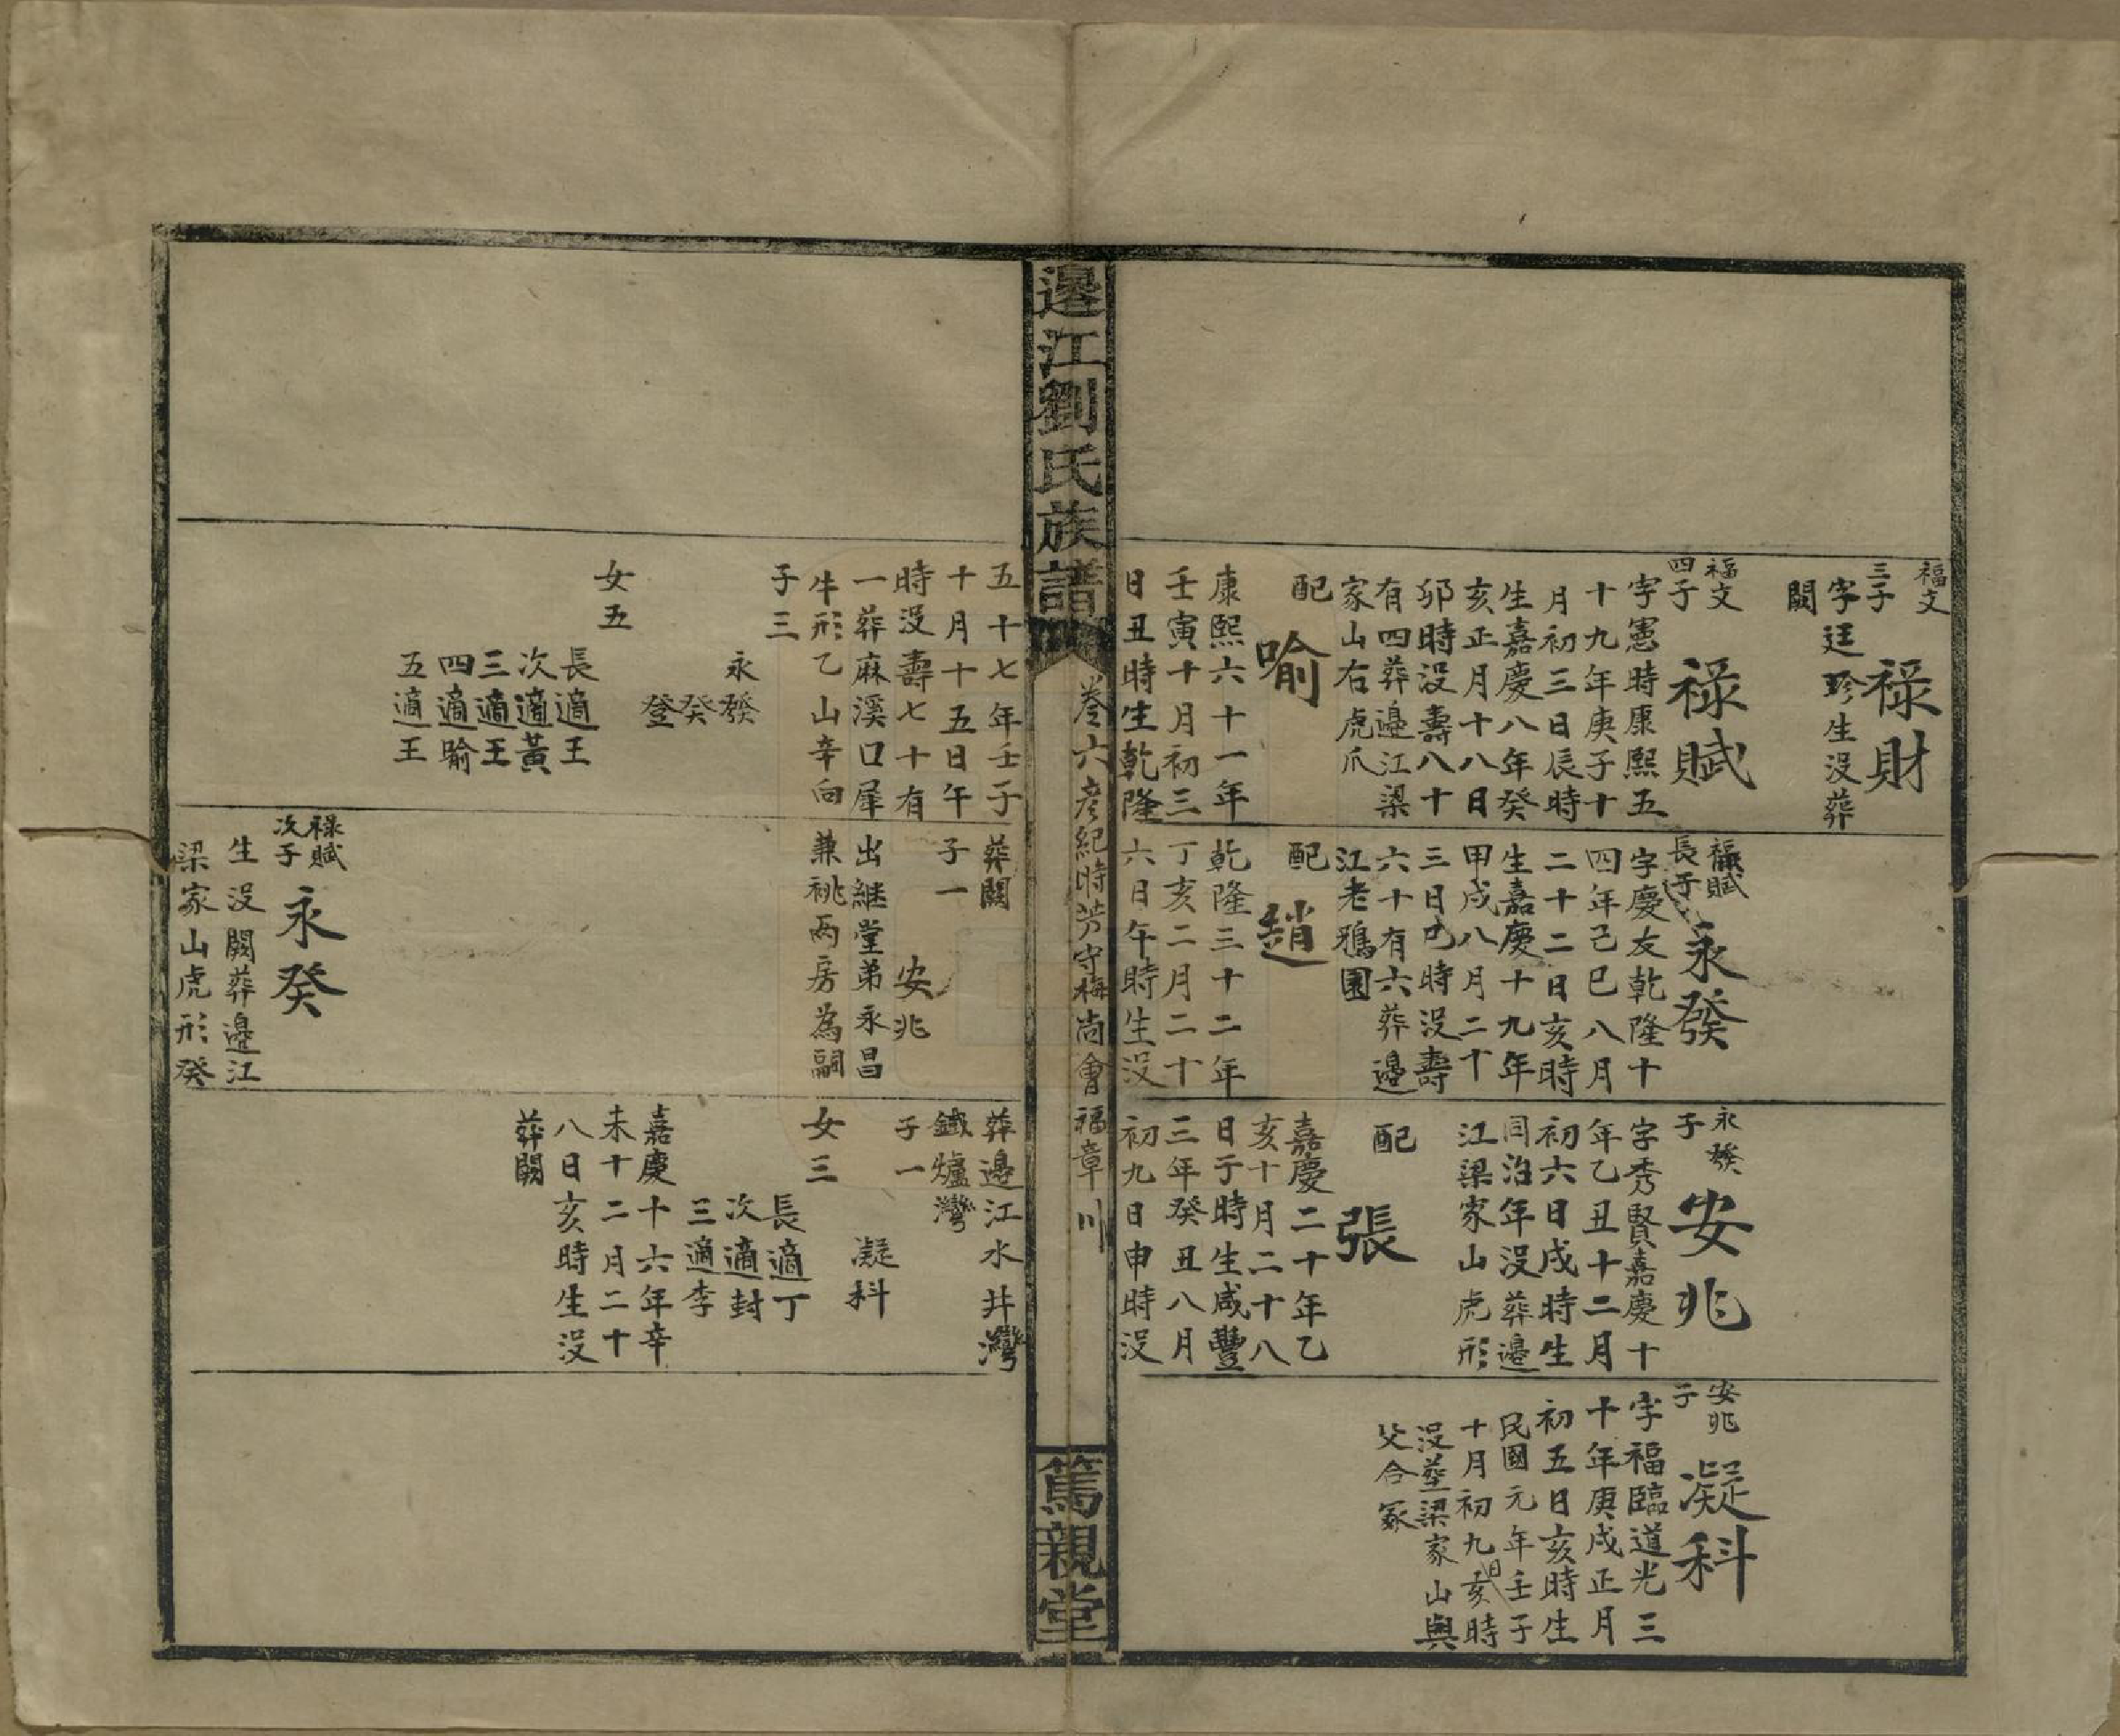 福文
三子
祿財
字廷珍生沒葬
闕
福文
四子
祿賦
字憲時康熙五
十九年庚子十
月初三日辰時
生嘉慶八年癸
亥正月十八日
卯時沒壽八十
有四葬邉江梁
家山右虎爪
配
喻
康熙六十一年
壬寅十月初三
日丑時生乾隆
祿賦
長子
永發
字慶友乾隆十
四年己巳八月
二十二日亥時
生嘉慶十九年
甲戌八月二十
三日巳時沒壽
六十有六葬邉
江老鴉園
配
趙
乾隆三十二年
丁亥二月二十
六日午時生沒
永發
子
安兆
字秀賢嘉慶十
年乙丑十二月
初六日戌時生
同治年沒葬邉
江梁家山虎形
配
張
嘉慶二十年乙
亥十月二十八
日子時生咸豐
三年癸丑八月
初九日申時沒
安兆
子
凝科
字福臨道光三
十年庚戌正月
初五日亥時生
民國元年壬子
十月初九日亥時
沒葬梁家山與
父合冢
邉江劉氏族譜
卷六彦紀時芳守梅尚會福章
川
篤親堂
五十七年壬子
十月十五日午
時沒壽七十有
一葬麻溪口犀
牛形乙山辛向
子三
永發
癸
登
女五
長適王
次適黃
三適王
四適喻
五適王
葬闕
子一
安兆
出継堂弟永昌
兼祧兩房為嗣
祿賦
次子
永癸
生沒闕葬邉江
梁家山虎形癸
葬邉江水井灣
鐵爐灣
子一
凝科
女三
長適丁
次適封
三適李
嘉慶十六年辛
未十二月二十
八日亥時生沒
葬闕